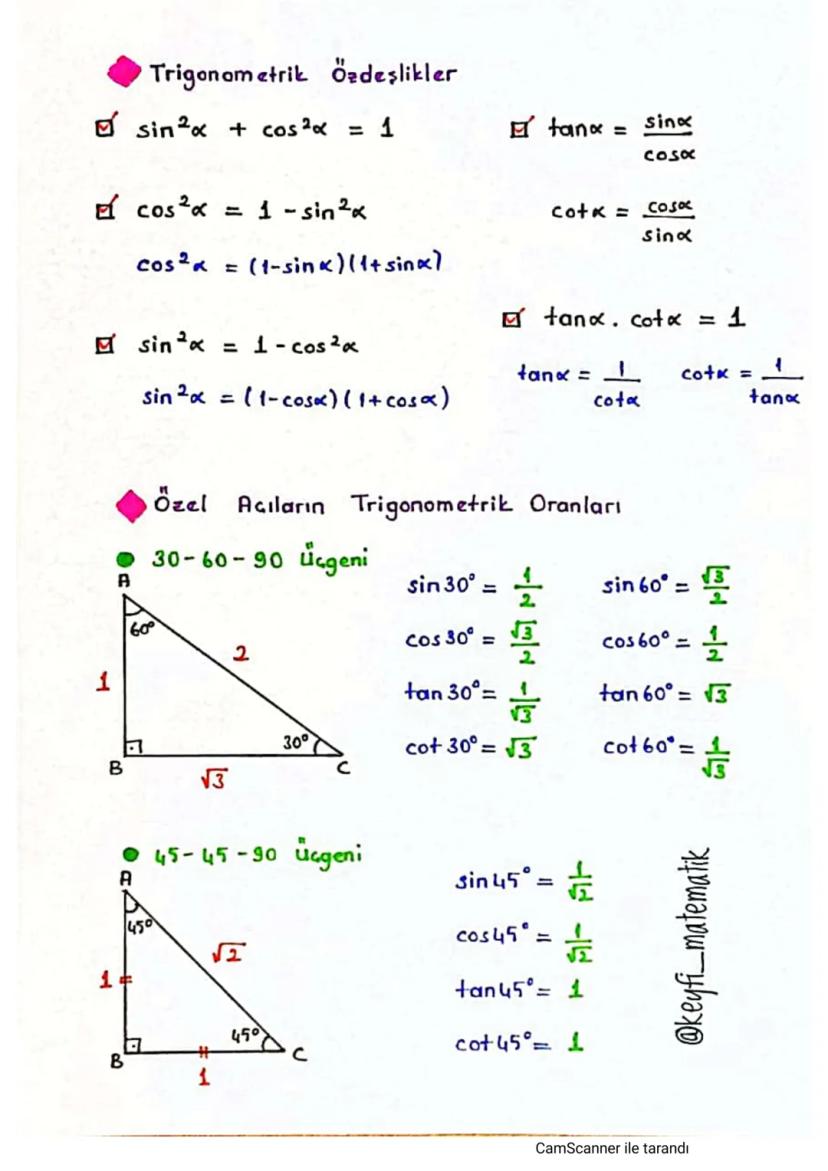 Trigonometrik Özdeşlikler
sin²α + cos²α = 1
cos²α = 1 - sin²α
cos²α = (1-sinα)(1+sinα)
sin²α = 1 - cos²α
sin²α = (1-cosα)(1+cosα)
tanα = sinα/cosα
cotα = cosα/sinα
tanα . cotα = 1
tanα = 1/cotα cotα = 1/tanα
Özel Açıların Trigonometrik Oranları
30-60-90 Üçgeni
A
60°
1
2
30°
B
C
√3
sin30° = 1/2 sin60° = √3/2
cos30° = √3/2 cos60° = 1/2
tan30° = 1/√3 tan60° = √3
cot30° = √3 cot60° = 1/√3
45-45-90 Üçgeni
A
45°
1
√2
45°
B
C
1
sin45° = 1/√2
cos45° = 1/√2
tan45° = 1
cot45° = 1
@keyfi_matematik
CamScanner ile tarandı